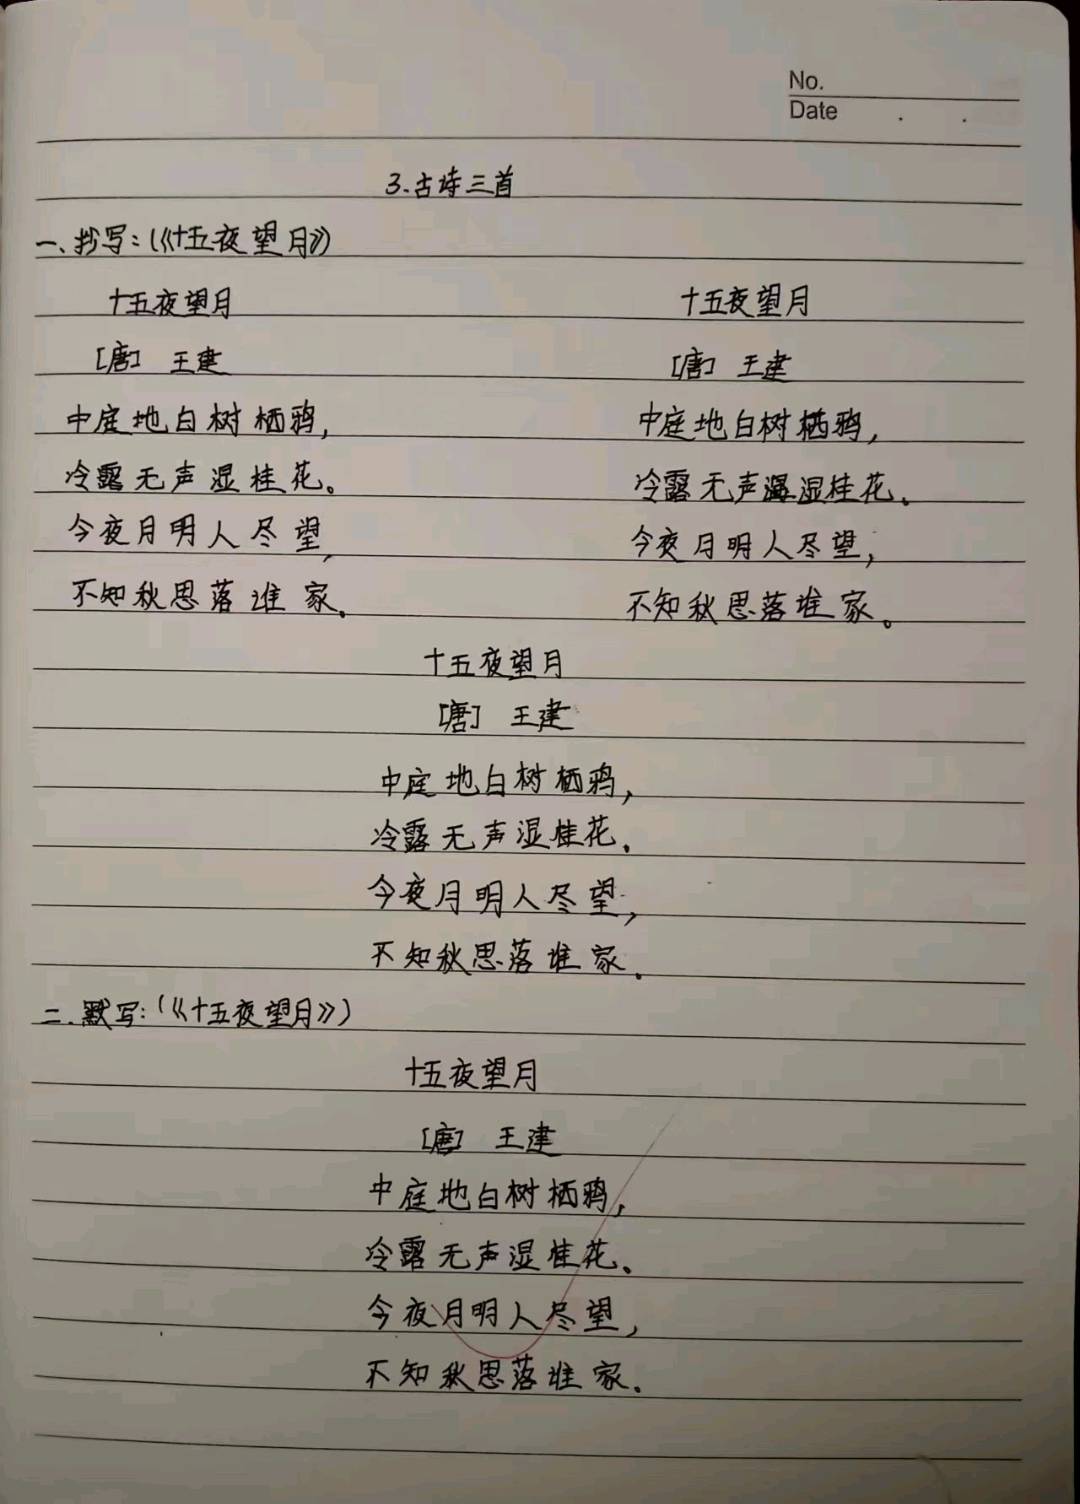 No.
Date
3.古诗三首
一、抄写:(《十五夜望月》)
十五夜望月
[唐] 王建
中庭地白树栖鸦,
冷露无声湿桂花。
今夜月明人尽望,
不知秋思落谁家。
十五夜望月
[唐] 王建
中庭地白树栖鸦,
冷露无声湿桂花。
今夜月明人尽望,
不知秋思落谁家。
十五夜望月
[唐] 王建
中庭地白树栖鸦,
冷露无声湿桂花.
今夜月明人尽望,
不知秋思落谁家.
二.默写:(《十五夜望月》)
十五夜望月
[唐] 王建
中庭地白树栖鸦,
冷露无声湿桂花.
今夜月明人尽望,
不知秋思落谁家.